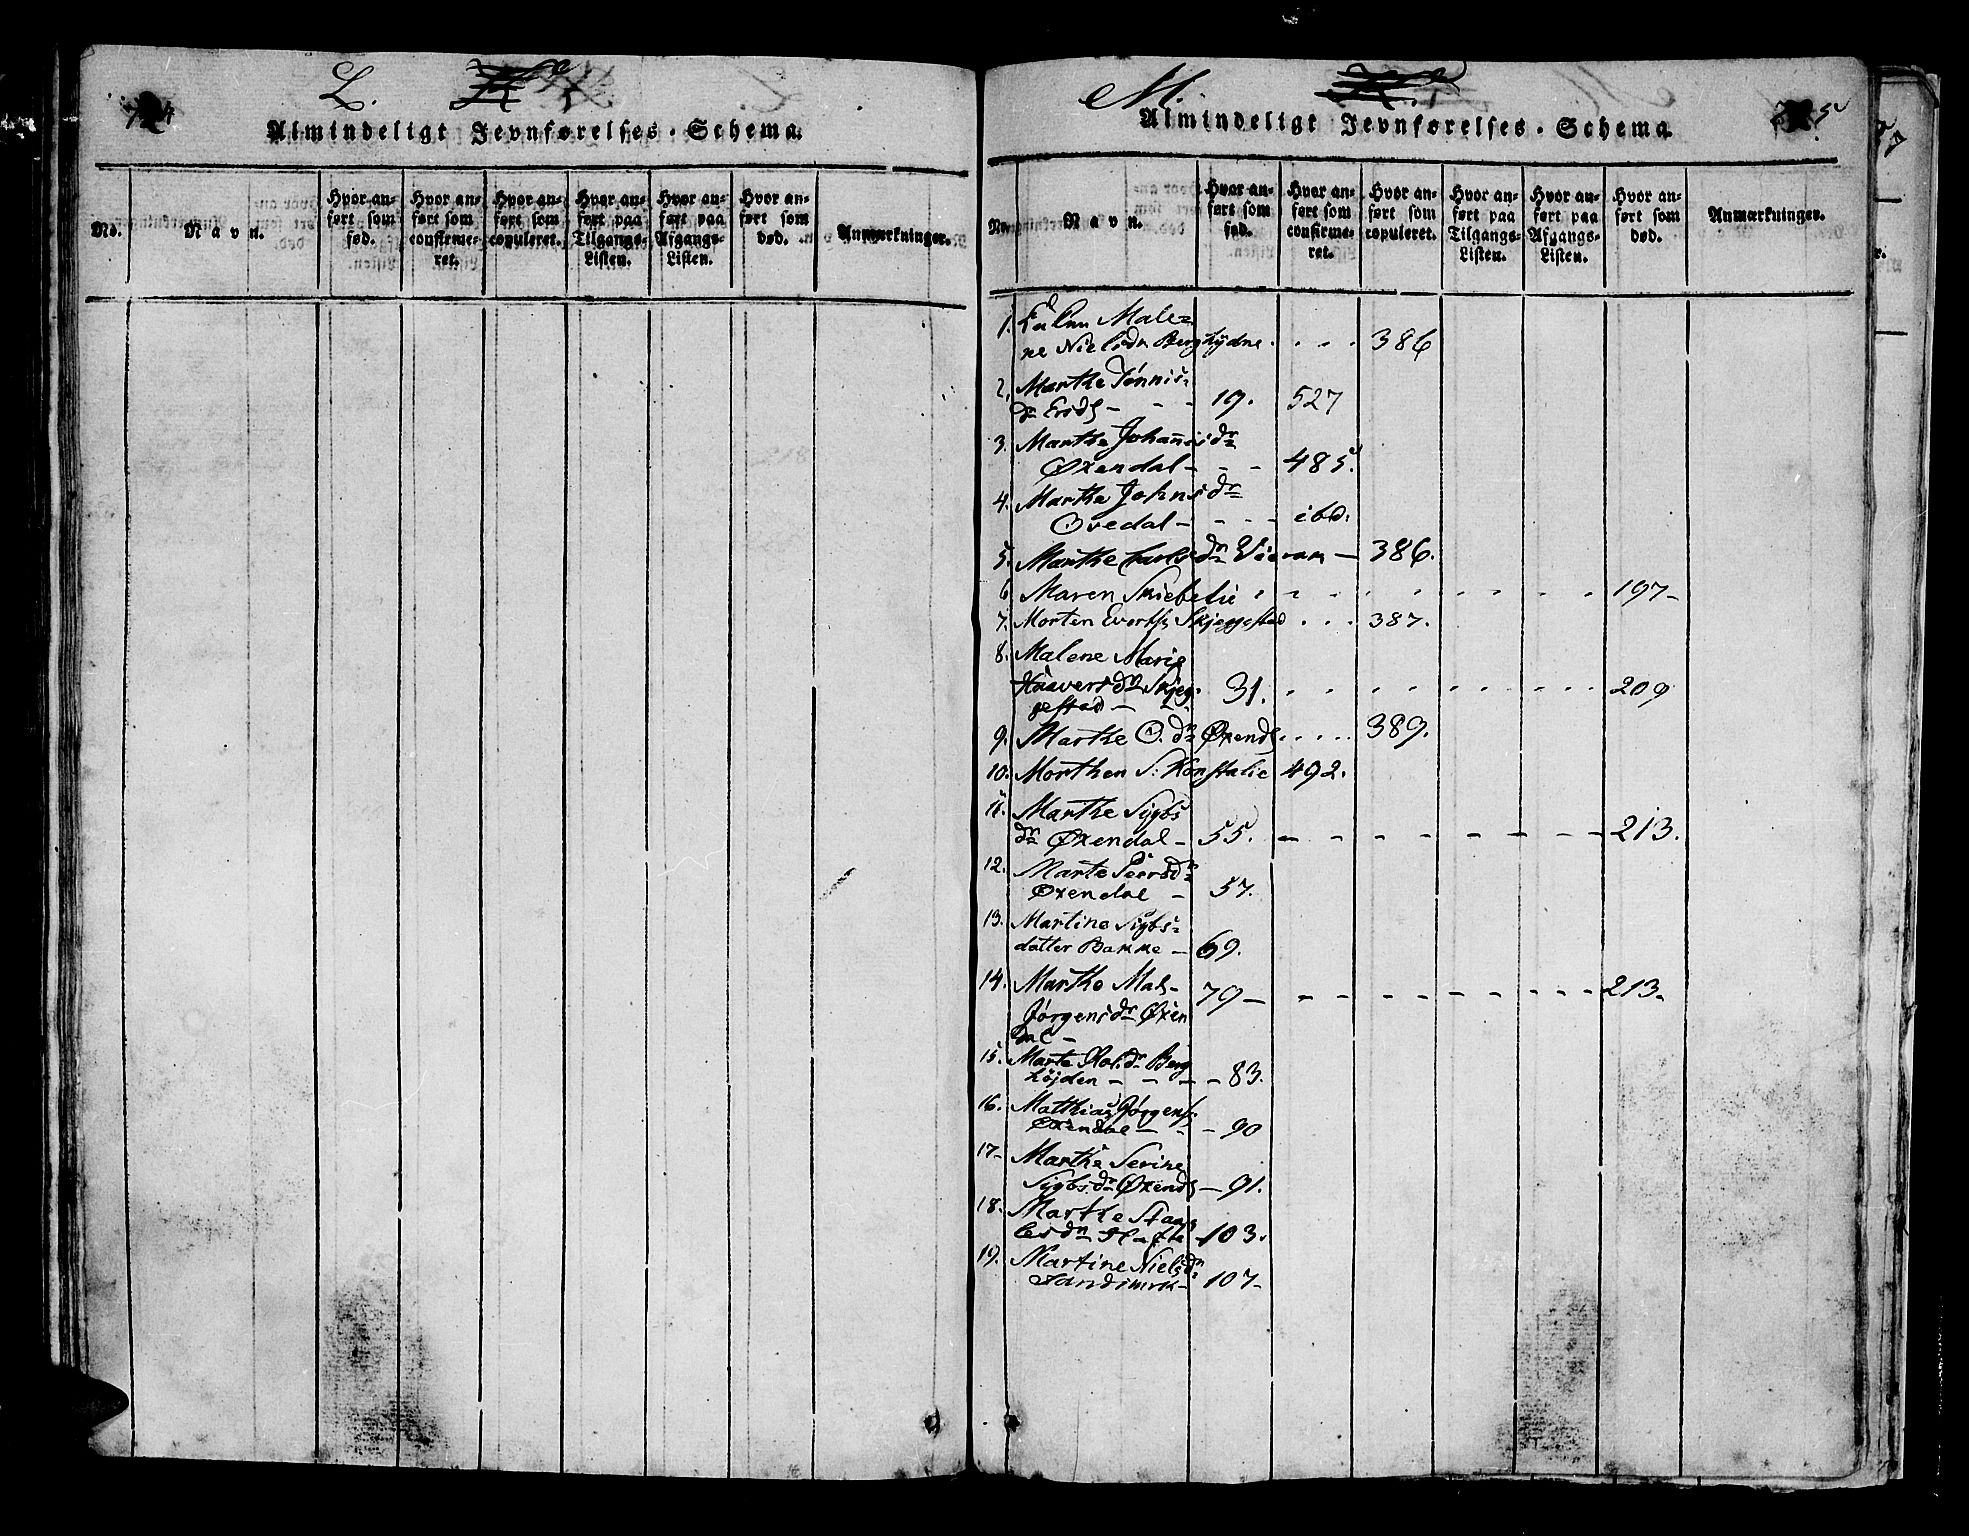 L.
Almindeligt Jevnførelses-Schema.
No.
Navn.
Hvor anført som fød.
Hvor anført som confirmeret.
Hvor anført som copuleret.
Hvor anført paa Tilgangs-Listen.
Hvor anført paa Afgangs-Listen.
Hvor anført som død.
Anmærkninger.
M.
Almindeligt Jevnførelses-Schema.
No.
Navn.
Hvor anført som fød.
Hvor anført som confirmeret.
Hvor anført som copuleret.
Hvor anført paa Tilgangs-Listen.
Hvor anført paa Afgangs-Listen.
Hvor anført som død.
Anmærkninger.
1. Male=
ne Nielsdr Berghydne . . . . 386
2. Marthe Tønnis=
dr - - - 19. 527
3. Marthe Johannisdr
Øxendal - - - 485.
4. Marthe Johnsdr
Ovedal - - - - ibd.
5. Marthe Carlsdr - 386.
6 Maren 197-
7. Morten Skjeggestad . . . 387.
8. Malene Marie
Haaversdr Skjeg- 31. 209
gestad - - -
9. Marthe O. dr Øxendl . . . . 389.
10. Morthen S: 492.
11. Marthe Sigbs
dr Øxendal - 55. - - - - - - - - 213.
12. Marte Peersdr
Øxendal - 57.
13. Martine Sigbs=
datter Bakke - 69.
14. Marthe Mat-
Jørgensdr Øxen 79 - - - - - - - - - 213.
dal -
15. Marte dr Berg
højden - - - - 83.
16. Matthias Jørgens.
Øxendal - - - 90
17- Marthe Serine
Sigbsdr Øxendl - 91.
18. Marthe Staa=
lesdr - 103.
19. Martine Nielsdr
- 107-